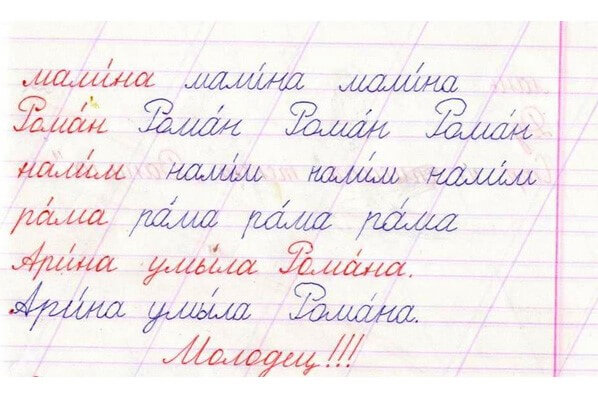 мали́на мали́на мали́на
Рома́н Рома́н Рома́н Рома́н
нали́м нали́м нали́м нали́м
ра́ма ра́ма ра́ма ра́ма
Ари́на умы́ла Рома́на.
Ари́на умы́ла Рома́на.
Молодец!!!